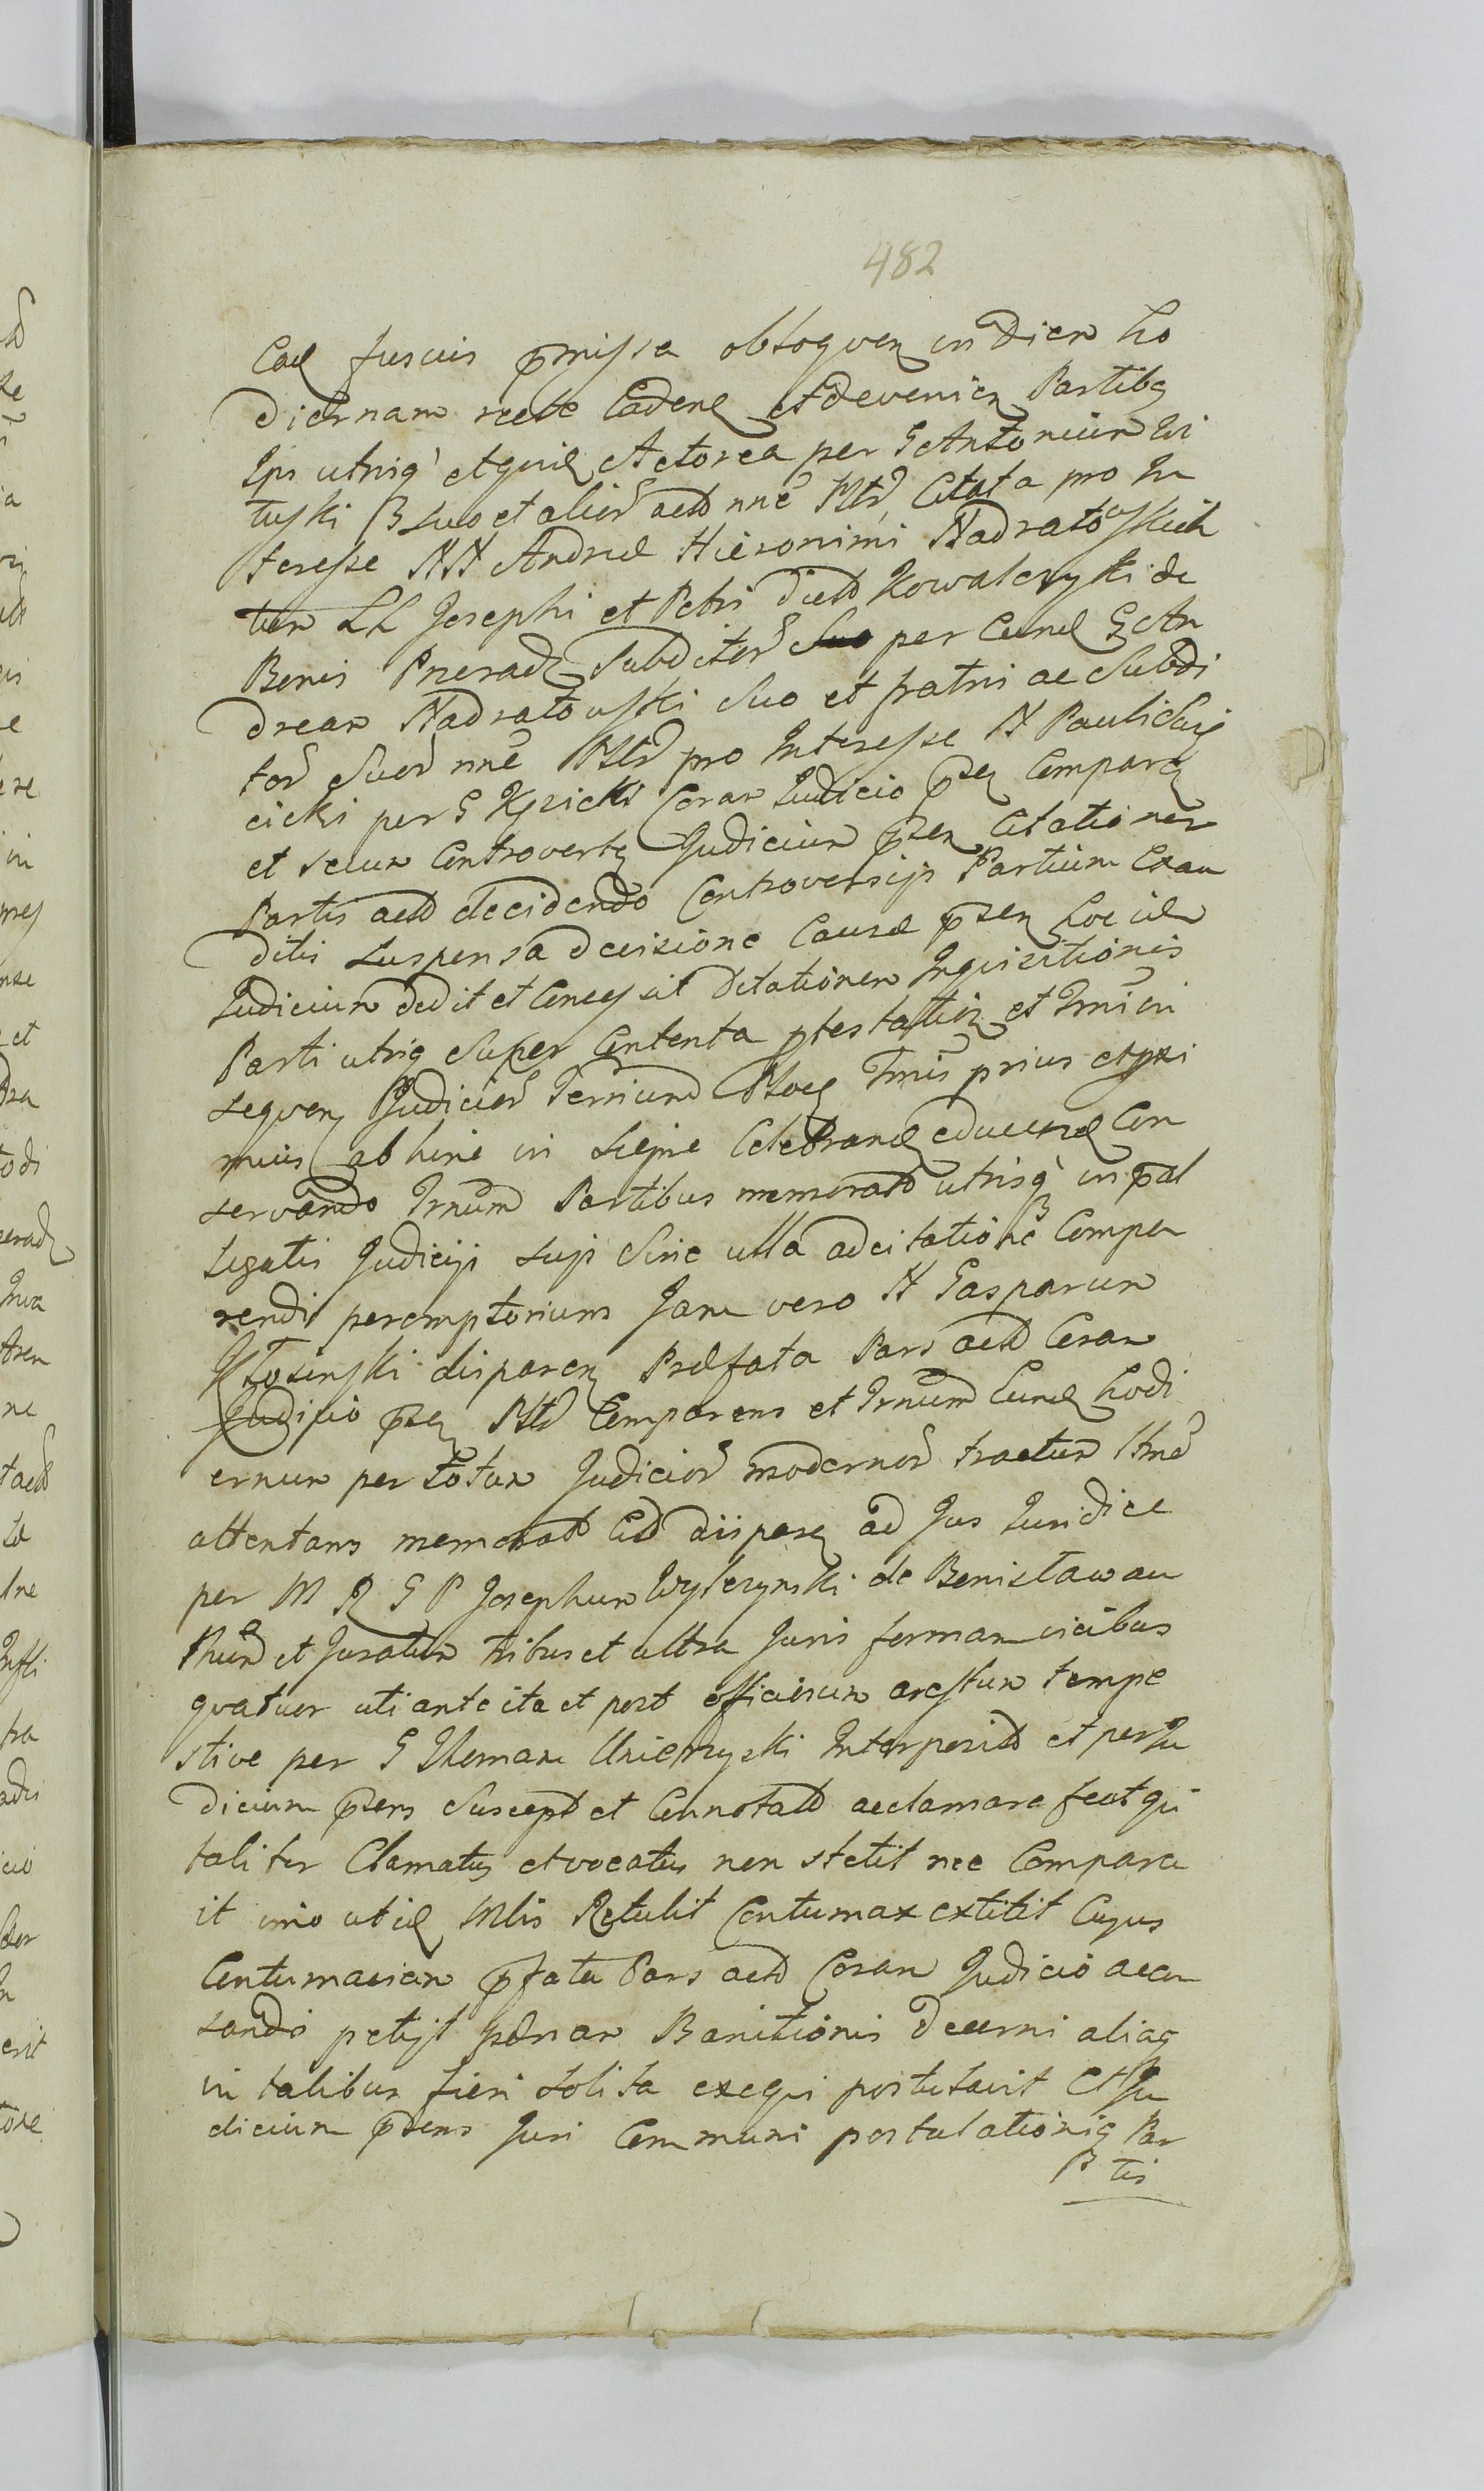 482
Cae fusius pmissa obloquen in diem ho
diernam recte Caden et devenien Partibq
Ipis utrisq etquid Actorea per G Antonium Wi
tuski B suo et aliord actd nne Mtd Citata pro In
teresse NN Andree Hieronimi Nadratowskich
tum LL Josephi et Petri dictd Kowalczyki de
Bonis Pneradz Subditord per Eund G An
dream Nadratowski Suo et fratri ac Subdi
tord Suord nne Mtd pro Interesse N Pauli
cicki per G Kczicki Coram Judicio psen Comparen
et secum Controverten Judicium psen Citationem
Partis actd decidendo Controversijs Partium Exau
ditis suspensa decisione Causae psen hoc idem
Judicium dedit et Concessit dilationem Inquisitionis
Parti utriq Super Contenta ptestation et Tmini in
sequen Judiciord Terriumd Tmis prius et pxi
mius abhinc in Sieprc Celebrand educend Con
servando Trnum Partibus memoratd utrisq in pal
legatis Judicijs suis Sine ulla adcitatione Compa
rendi peremptorium Jam vero N Gasparum
Kłosinski disparen Praefata Pars actd Coram
Judicio psen Mtd Comparens et Trnum Eund hodi
ernum per totum Judiciord modernord tractum
attentans memoratd Citd disparen ad Jus Juridice
per M R G P Josephum Wyszczynski de Bonisław au
thund et Juratum tribus et ultra Juris formam vicibus
quatuor uti ante ita et post officiosum arestum tempe
stive per G Thomam Uniedzyski Interpositd et per Ju
dicium psens Susceptd et Connotatd acclamare fecit qui
taliter Clamatus et vocatus non stetit nec Comparu
it imo utid Mlis Retulit Contumax extitit Cujus
Contumaciam pfata Pars actd Coram Judicio accu
sando petijt paenam Banitionis decerni aliaq
in talibus fieri solita exequi postulavit Et Ju
dicium psens Juri Communi postulationiq Par
tis